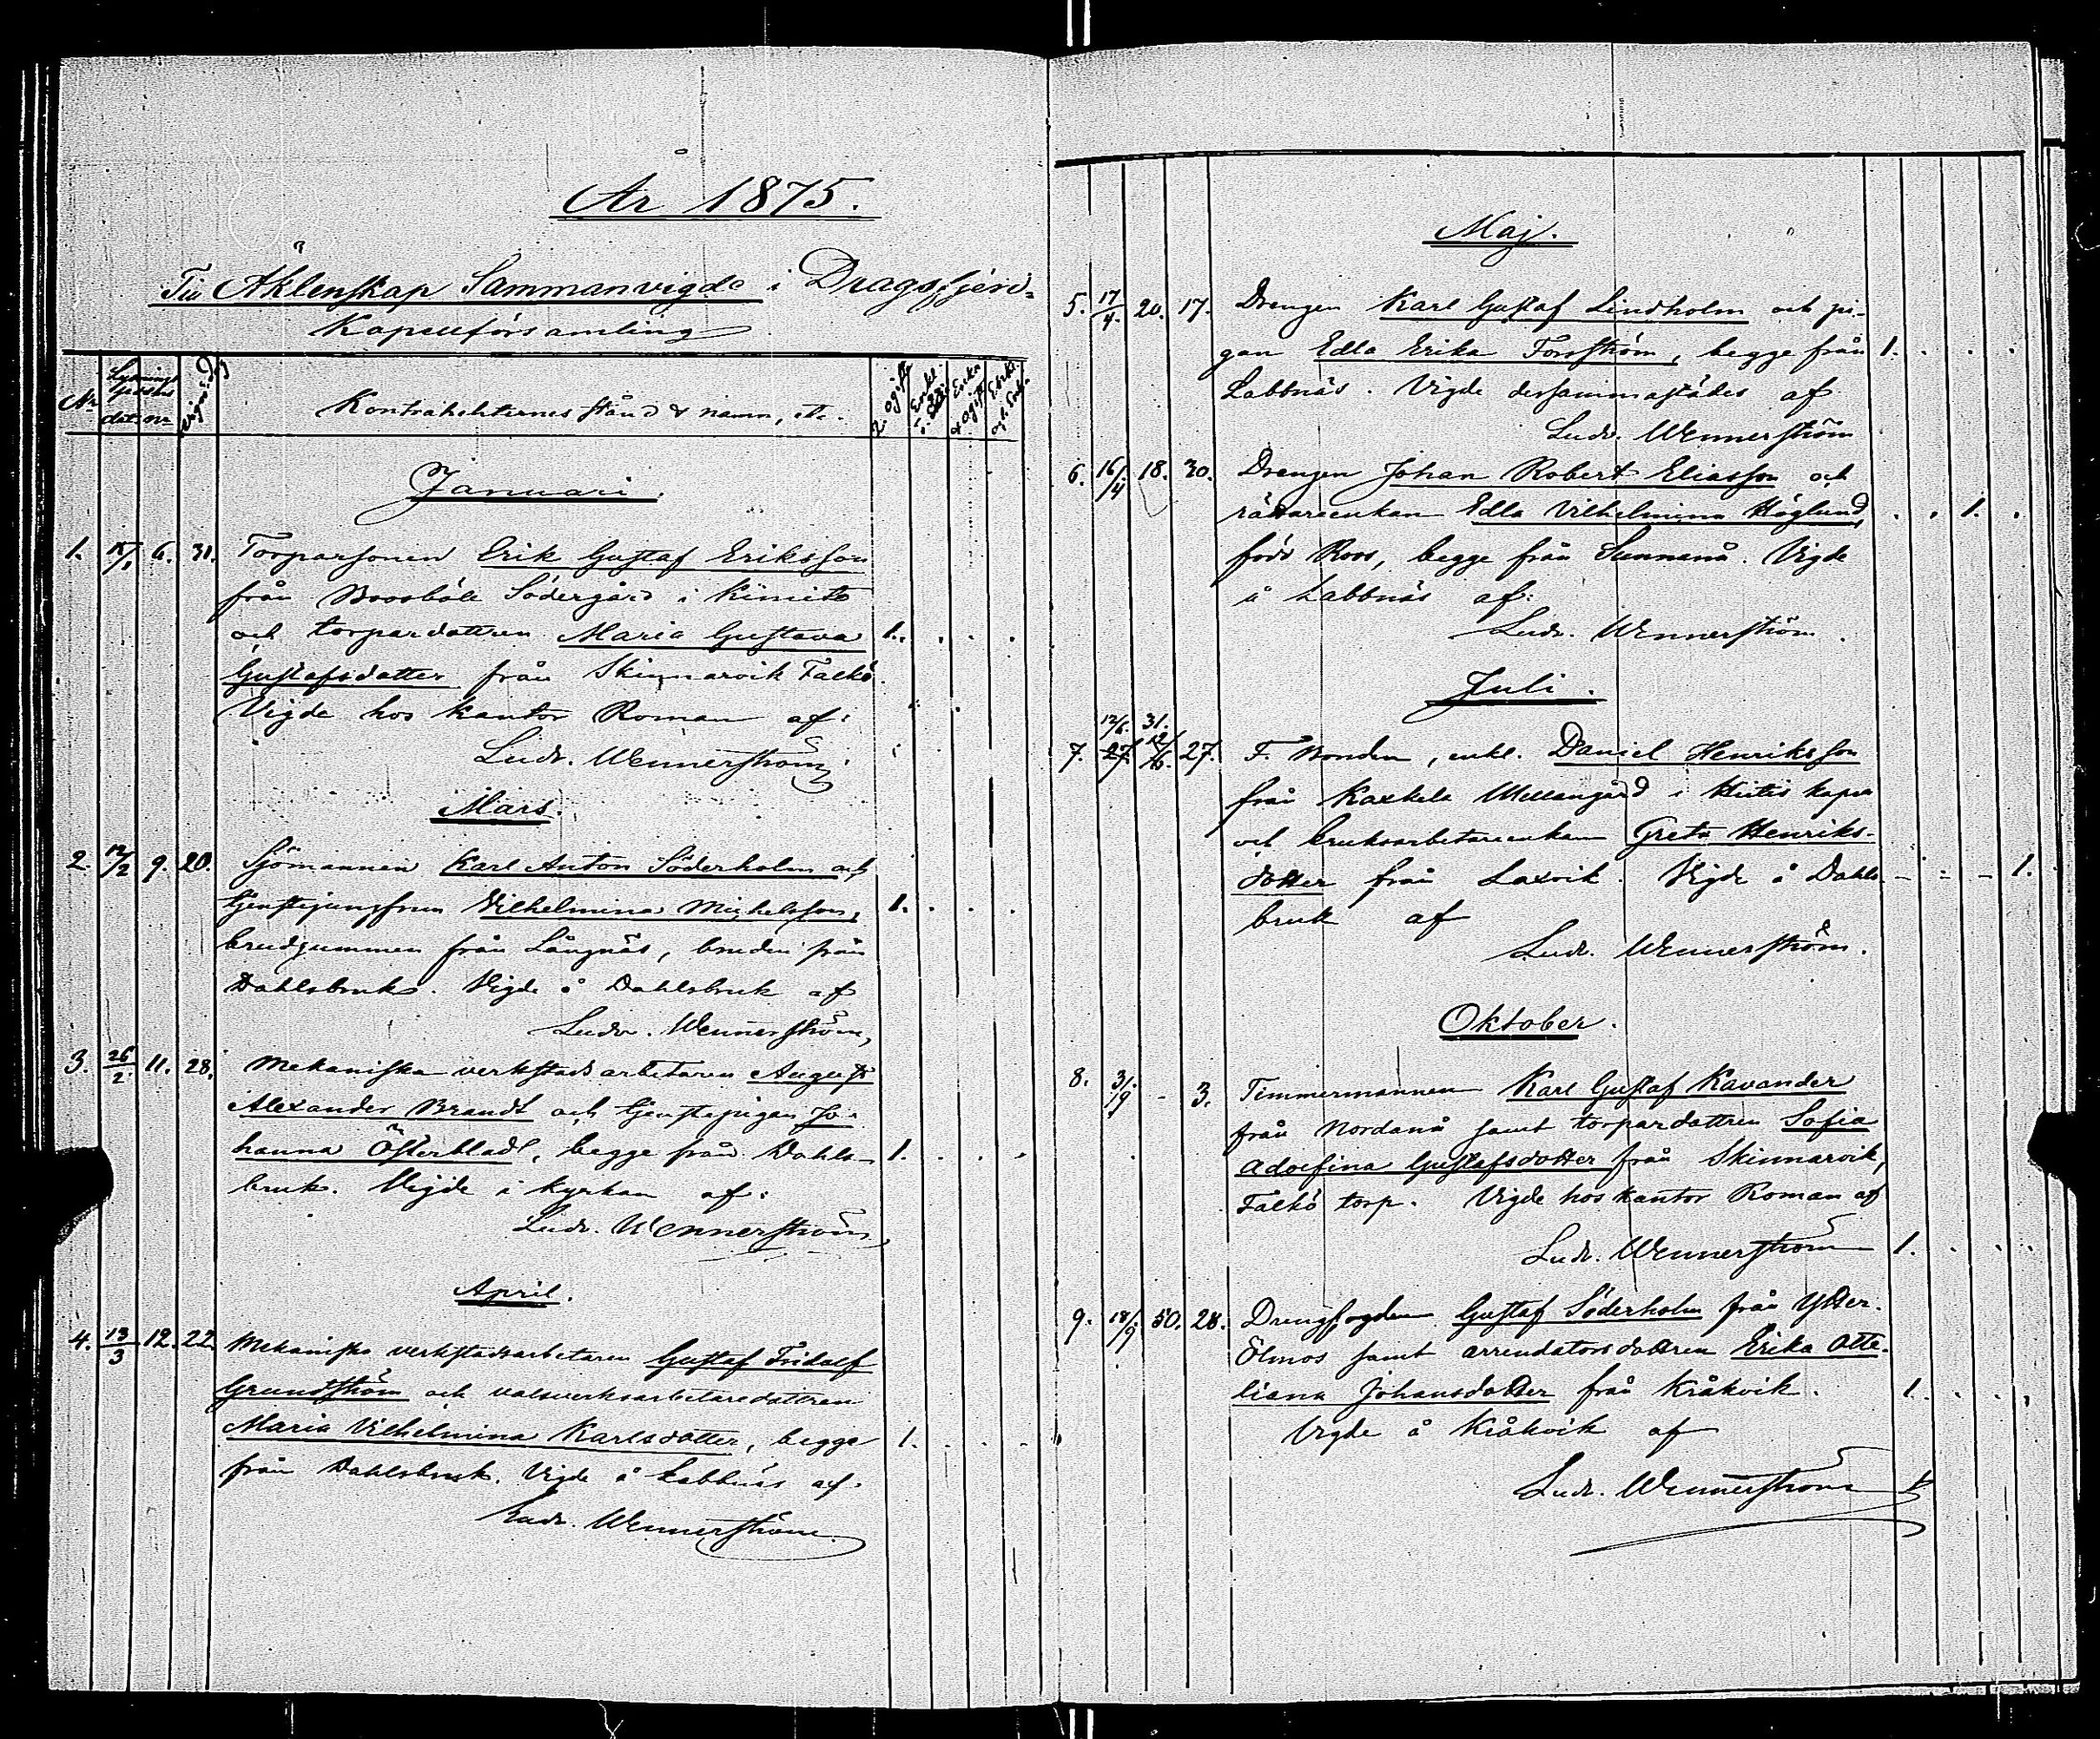 År 1875.
Till Äktenskap Sammanvigde i Dragsfjerds
Kapellförsamling
No Lysnings dat. No Vigns. dag Kontrahenternes stånd & namn, etc. 2 ogifte Enkl. Enka & ogift Enkl. och Enka
Januari.
1. 15/1 6. 31. Torparsonen Erik Gustaf Eriksson
från Boosböle Södergård i Kimito
och torpardottren Maria Gustava 1. . . .
Gustafsdotter från Skinnarvik Falkö.
Vigde hos kantor Roman af:
Ludv. Wennerström
Mars.
2. 12/2 9. 20. Sjömannen Karl Anton Söderholm och
tjenstejungfrun Vilhelmina Michelsson, 1. . . .
brudgummen från Långnäs, bruden från
Dahlsbruk. Vigde å Dahlsbruk af
Ludv. Wennerström,
3. 26/2. 11. 28. Mekaniska verkstads arbetaren August
Alexander Brandt och tjenstepigan Jo-
hanna Österblad, begge från Dahls- 1. . . .
bruk. Vigde i kyrkan af:
Ludv. Wennerström,
April.
4. 13/3 12. 22. Mekaniska verkstadsarbetaren Gustaf Fridolf
Grundström och valsverksarbetaredottren
Maria Vilhelmina Karlsdotter, begge 1. . . .
från Dahlsbruk. Vigde å Labbnäs af.
Ludv. Wennerström.
Maj.
5. 17/4. 20. 17. Drengen Karl Gustaf Lindholm och pi-
gan Edla Erika Forsström, begge från 1. . . .
Labbnäs. Vigde dersammastädes af
Ludv. Wennerström
6. 16/4 18. 30. Drengen Johan Robert Eliasson och
rättareenkan Edla Vilhelmina Höglund, . . 1. .
född Roos, begge från Sunnanå. Vigde
å Labbnäs af:
Ludv. Wennerström.
Juli.
12/6. 31.
7. 27. 12/6. 27. F. Bonden, enkl. Daniel Henriksson
från Kaxkela Mellangård i Hitis kapell
och bruksarbetareenkan Greta Henriks-
dotter från Laxvik. Vigde å Dahls- - - - 1.
bruk af
Ludv. Wennerström.
Oktober.
8. 3/9 - 3. Timmermannen Karl Gustaf Kavander
från Nordanå samt torpardottren Sofia
Adolfina Gustafsdotter från Skinnarvik,
Falkö torp. Vigde hos kantor Roman af
Ludv. Wennerström 1. . . .
9. 18/9 50. 28. Drengfogden Gustaf Söderholm från Ytter-
Ölmos samt arrendatorsdottren Erika Otte-
liana Johansdotter från Kråkvik. 1. . . .
Vigde å Kråkvik af
Ludv. Wennerström